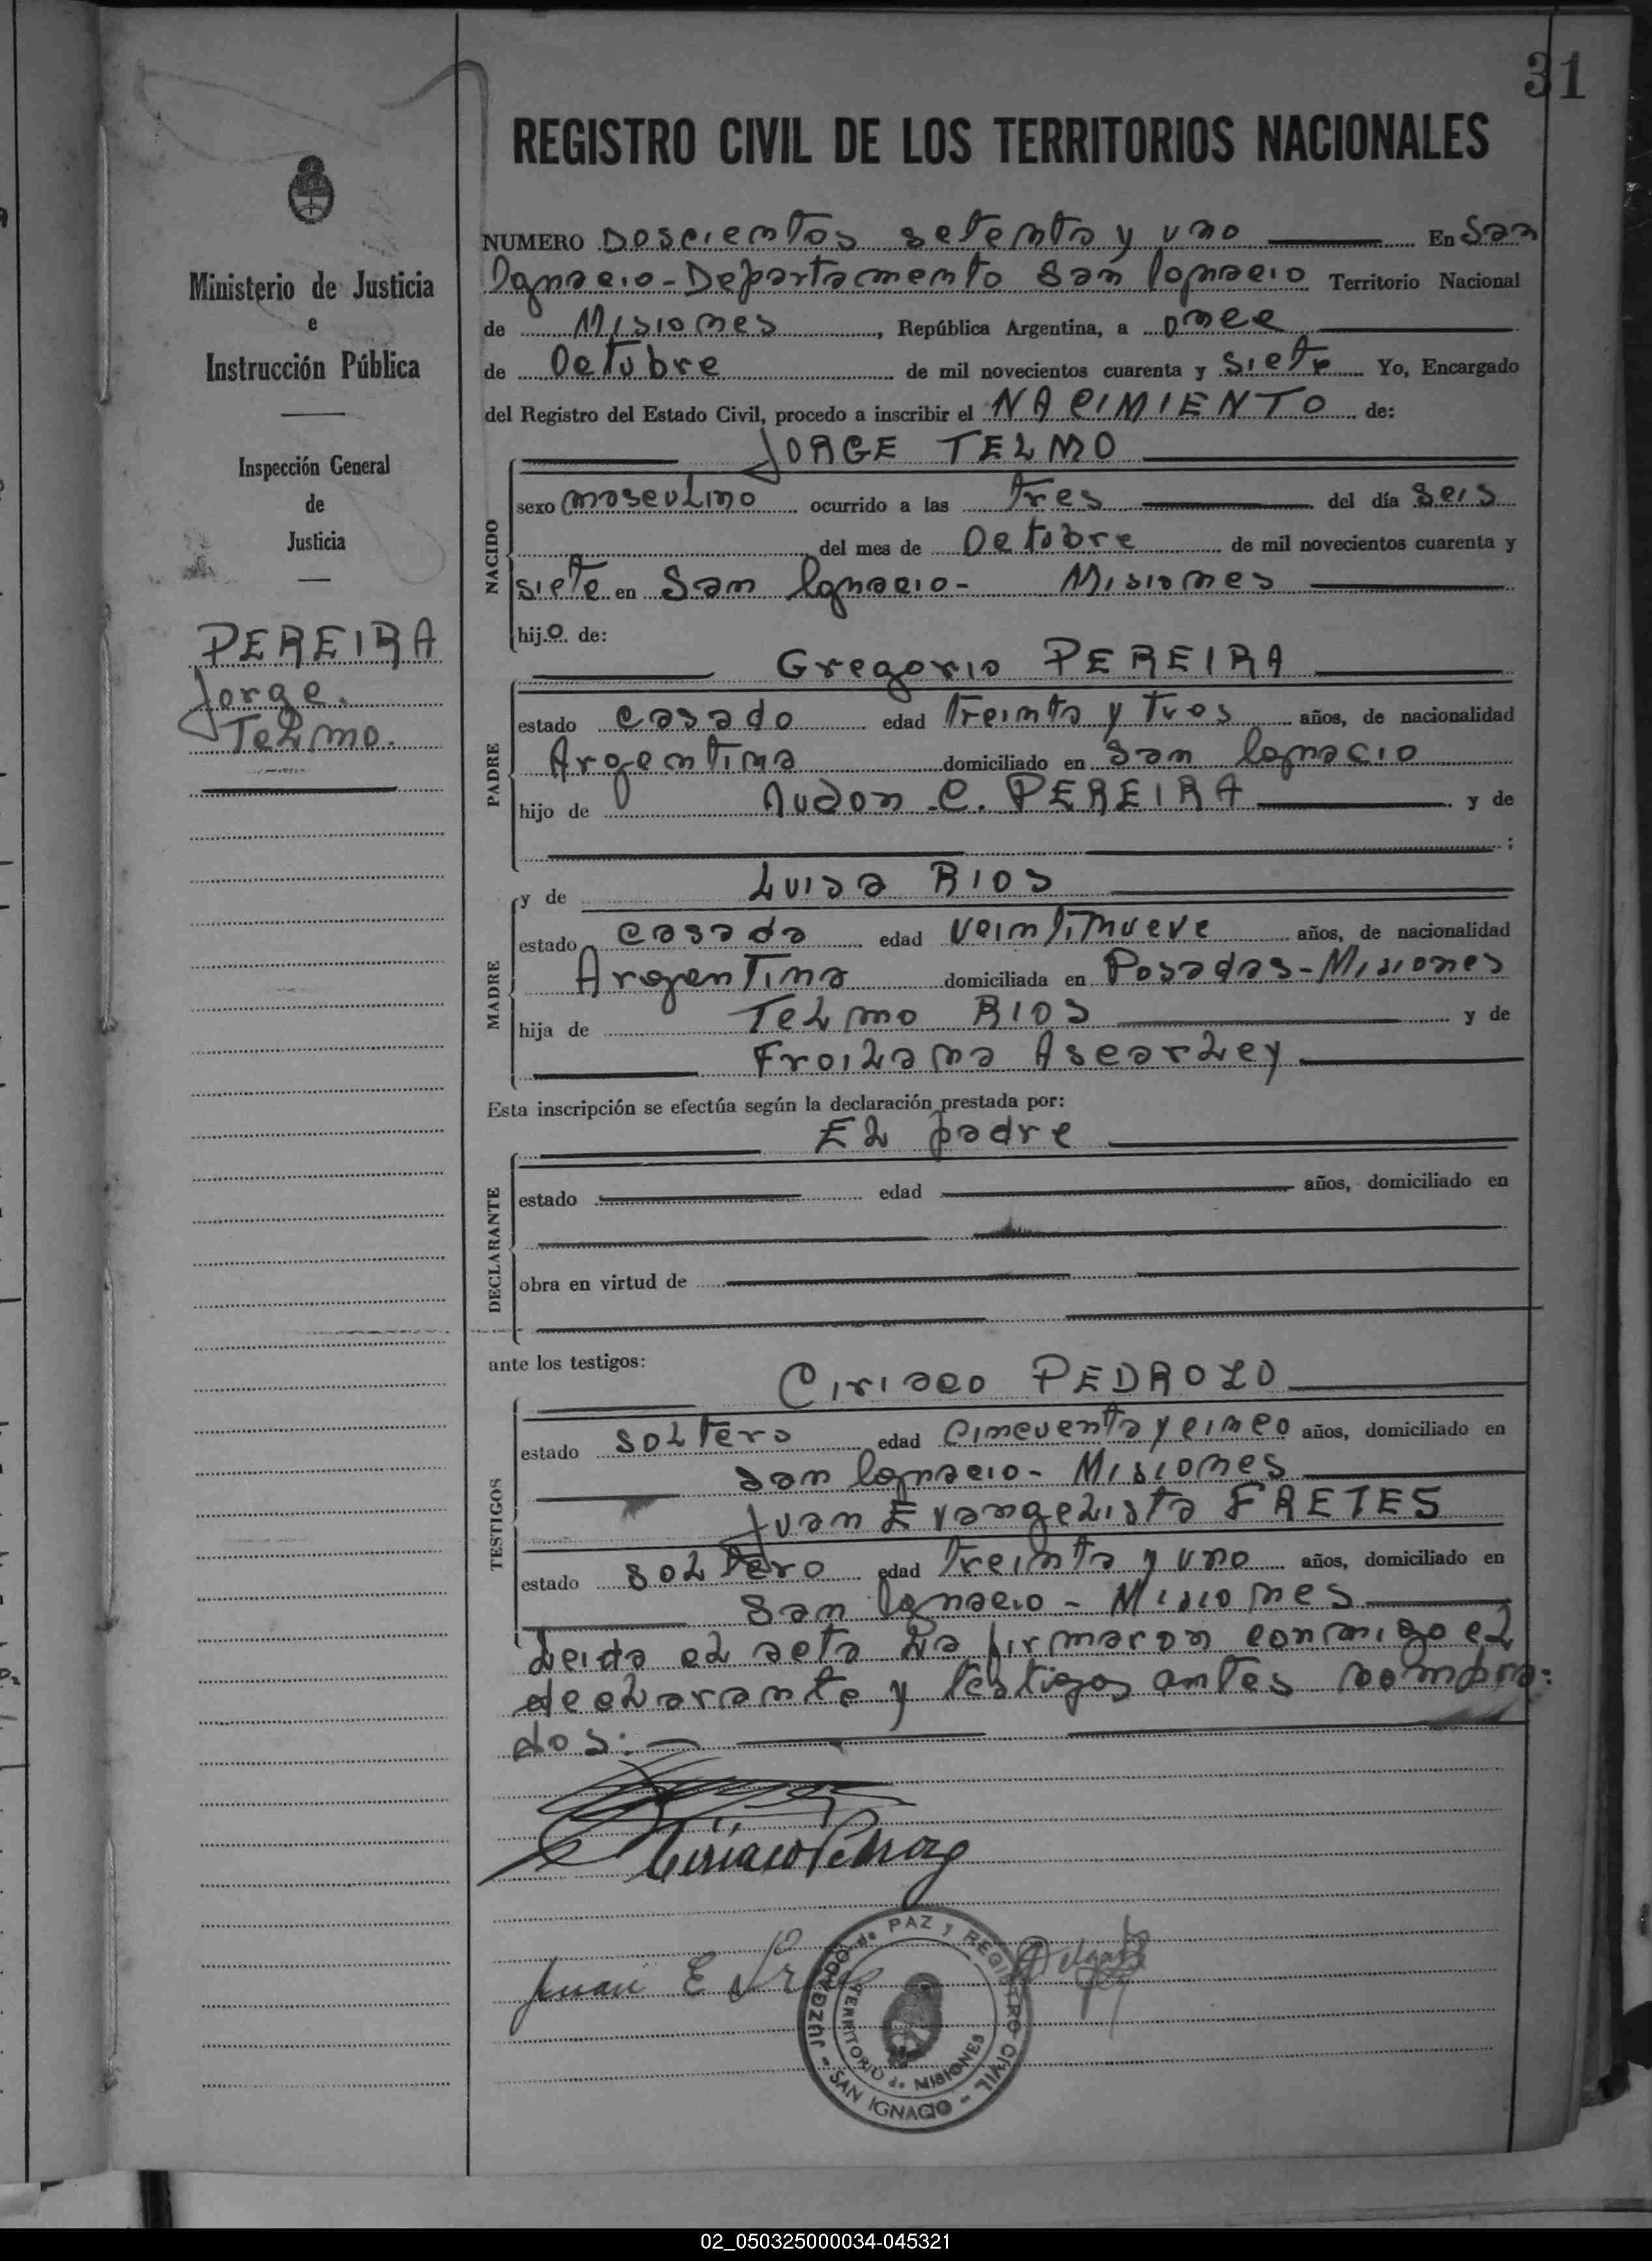 31
REGISTRO CIVIL DE LOS TERRITORIOS NACIONALES
Ministerio de Justicia
e
Instrucción Pública
Inspección General
de
Justicia
PEREIRA
Jorge.
Telmo.
NUMERO Doscientos setenta y uno En San
Ignacio - Departamento San Ignacio Territorio Nacional
de Misiones, República Argentina, a once
de Octubre de mil novecientos cuarenta y siete Yo, Encargado
del Registro del Estado Civil, procedo a inscribir el NACIMIENTO de:
JORGE TELMO
NACIDO
sexo masculino ocurrido a las tres del día seis
del mes de Octubre de mil novecientos cuarenta y
siete en San Ignacio - Misiones
hijo de:
Gregorio PEREIRA
PADRE
estado casado edad treinta y tres años, de nacionalidad
Argentina domiciliado en San Ignacio
hijo de Audon C. PEREIRA y de
;
y de Luisa RIOS
MADRE
estado casada edad veintinueve años, de nacionalidad
Argentina domiciliada en Posadas - Misiones
hija de Telmo RIOS y de
Froilana Ascarley
Esta inscripción se efectúa según la declaración prestada por:
El padre
DECLARANTE
estado edad años, domiciliado en
obra en virtud de
ante los testigos:
Ciriaco PEDROZO
TESTIGOS
estado soltero edad cincuenta y cinco años, domiciliado en
San Ignacio - Misiones
Juan Evangelista FRETES
estado soltero edad treinta y uno años, domiciliado en
San Ignacio - Misiones
Leida el acta la firmaron conmigo el
declarante y testigos antes nombra:
dos: —
Ciriaco Pedrozo
Juan E
JUZGADO de PAZ y REGISTRO CIVIL - SAN IGNACIO -
TERRITORIO de MISIONES
02_050325000034-045321